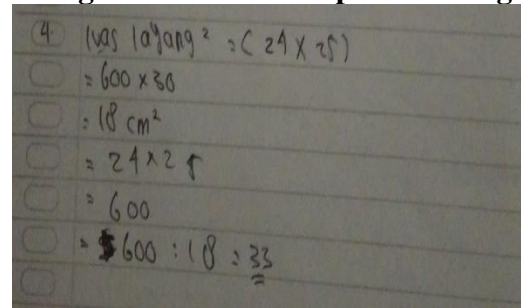 4. luas layang² = (24 x 25)
= 600 x 30
= 18 cm²
= 24 x 25
= 600
= 600 : 18 = 33